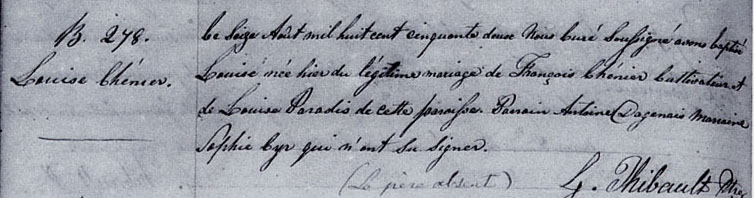 B. 278.
Louise Chénier.
Le Seize Août mil huit cent cinquante deux Nous Curé Soussigné avons baptisé
Louise née hier du légitime mariage de François Chénier Cultivateur et
de Louise Paradis de cette paroisse. Parrain Antoine Dagenais Marraine
Sophie Cyr qui n'ont su signer.
(Le père absent)
G. Thibault Ptre